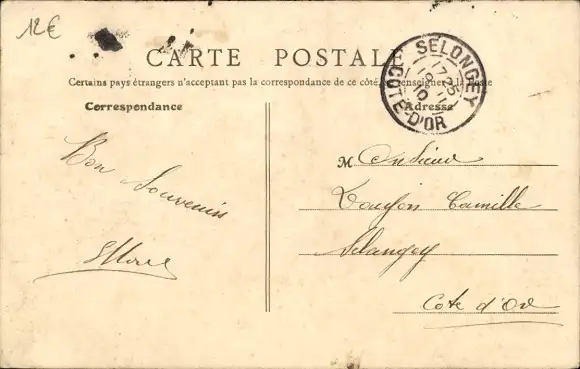 12€
CARTE POSTALE
Certains pays étrangers n'acceptant pas la correspondance de ce côté, se renseigner à la Poste
Correspondance
Adresse
SELONGEY
17 25
10
CÔTE-D'OR
Bon Souvenir
Monsieur
Camille
Selongey
Cote d'Or